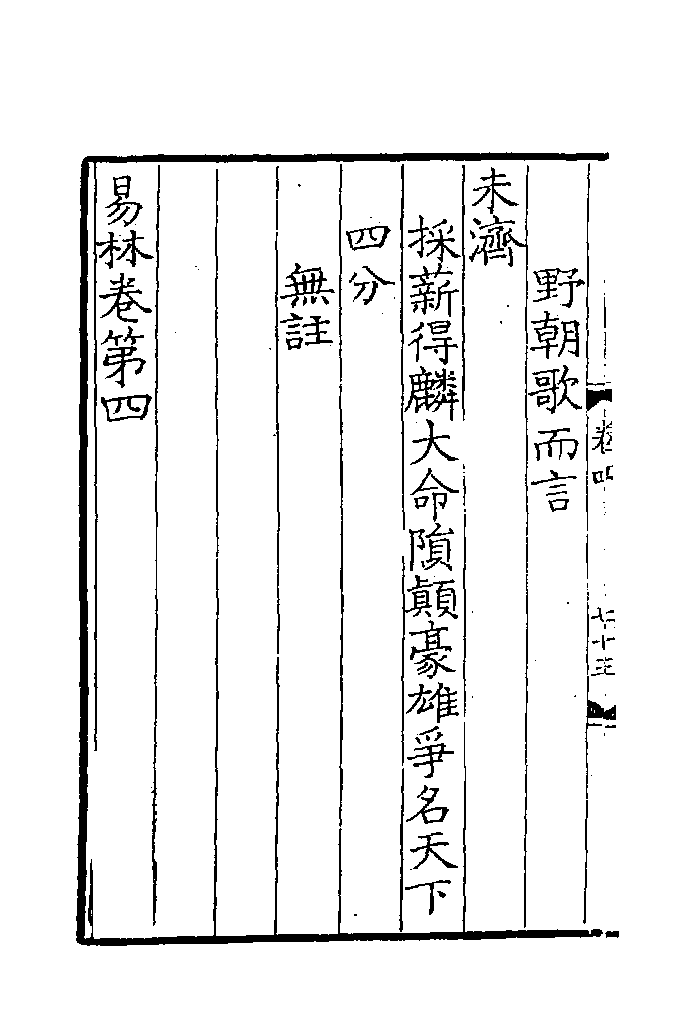 卷四
七十三
野朝歌而言
未濟
採薪得麟大命隕顛豪雄爭名天下
四分
無註
易林卷第四